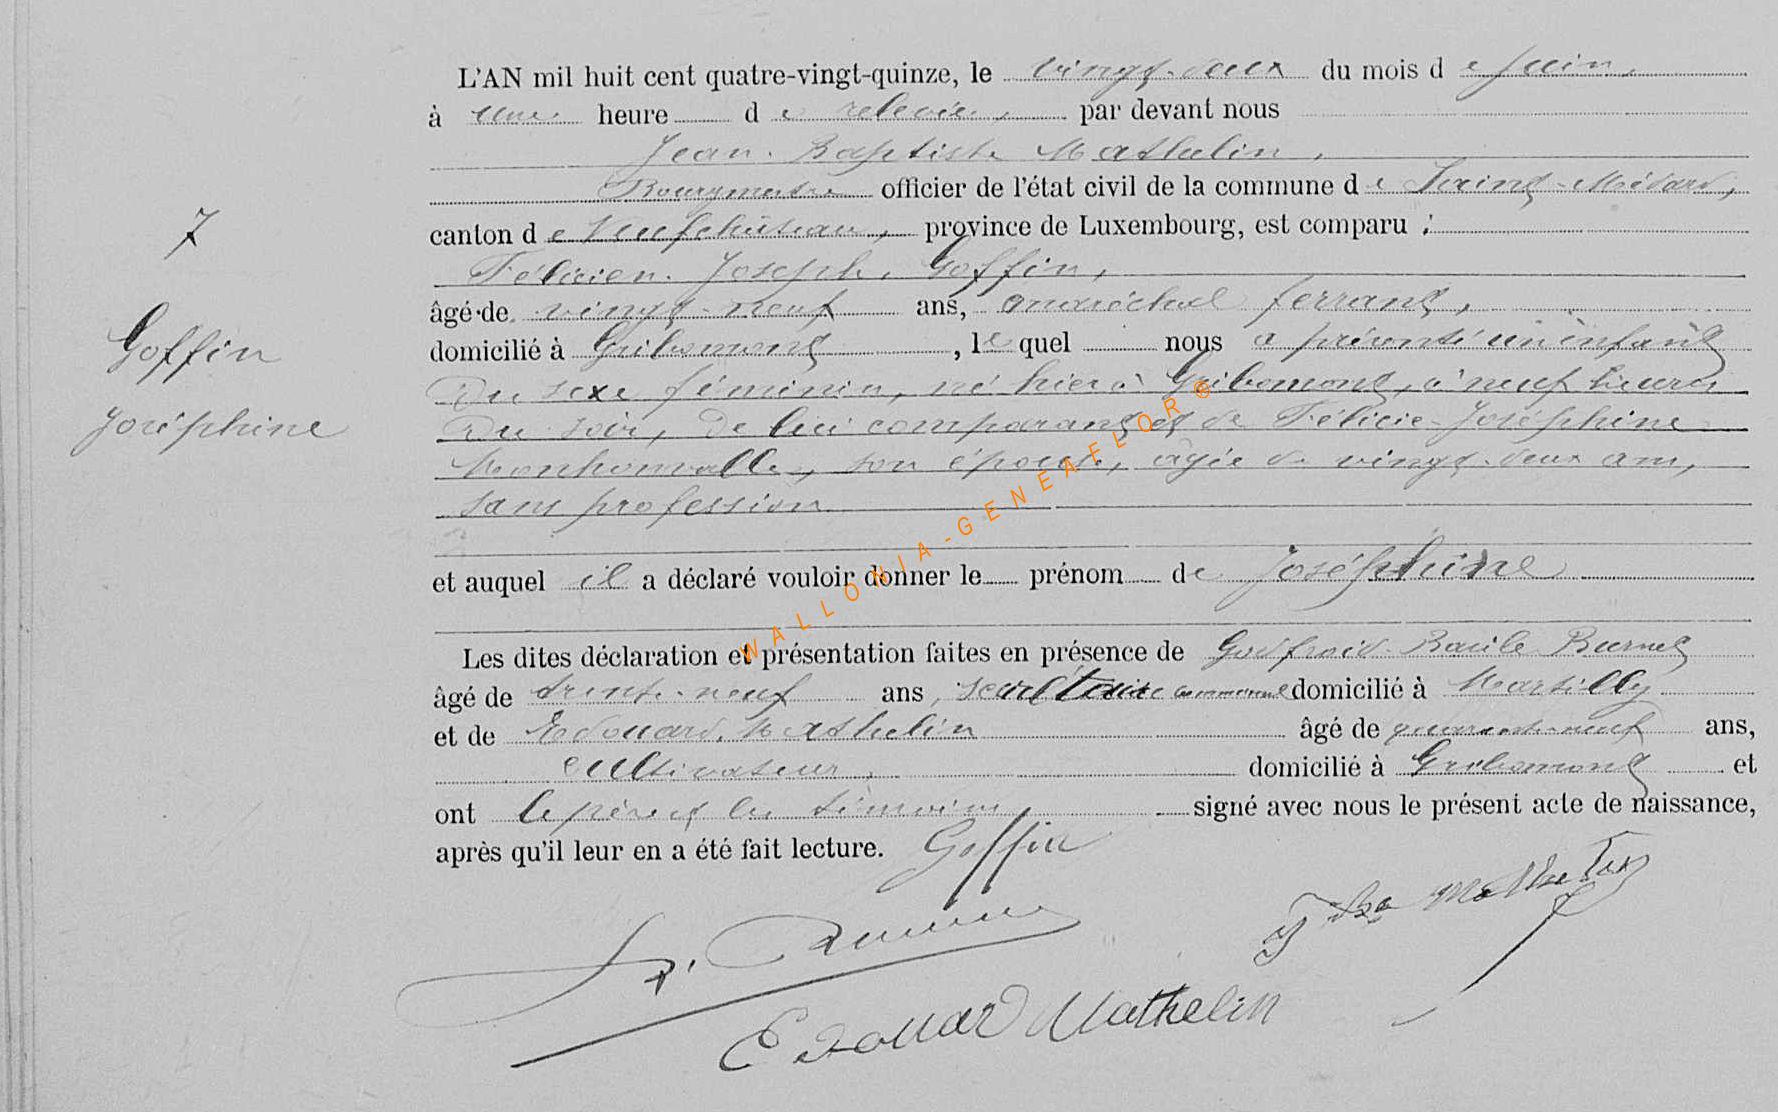 L'AN mil huit cent quatre-vingt-quinze, le vingt-deux du mois de juin,
à une heure de relevée, par devant nous
Jean-Baptiste Mathelin,
Bourgmestre officier de l'état civil de la commune de Saint-Médard,
canton de Neufchâteau, province de Luxembourg, est comparu :
Félicien-Joseph, Goffin,
7
âgé de vingt-neuf ans, maréchal ferrant,
Goffin
domicilié à Gribomont, lequel nous a présenté un enfant
du sexe féminin, né hier à Gribomont, à neuf heures
Joséphine
du soir, de lui comparant et de Félicie-Joséphine
son épouse, âgée de vingt-deux ans,
sans profession
et auquel il a déclaré vouloir donner le prénom de Joséphine
Les dites déclaration et présentation faites en présence de Godfroid Basile Burnet
âgé de trente-neuf ans, secrétaire communal domicilié à Martilly
et de Edouard Mathelin âgé de quarante-neuf ans,
cultivateur, domicilié à Gribomont et
ont le père et les témoins signé avec nous le présent acte de naissance,
après qu'il leur en a été fait lecture. Goffin
Jn Bte Mathelin
Edouard Mathelin
WALLONIA-GENEAFLOR®